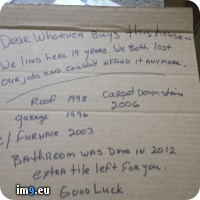 Dear Whoever Buys this house—
We lived here 19 years. We Both lost
our jobs and couldn't afford it anymore.
Roof 1998 Carpet Downstairs
2006
garage 1996
Furnace 2003
Bathroom was Done in 2012
extra tile left for you.
Good Luck
im9.eu